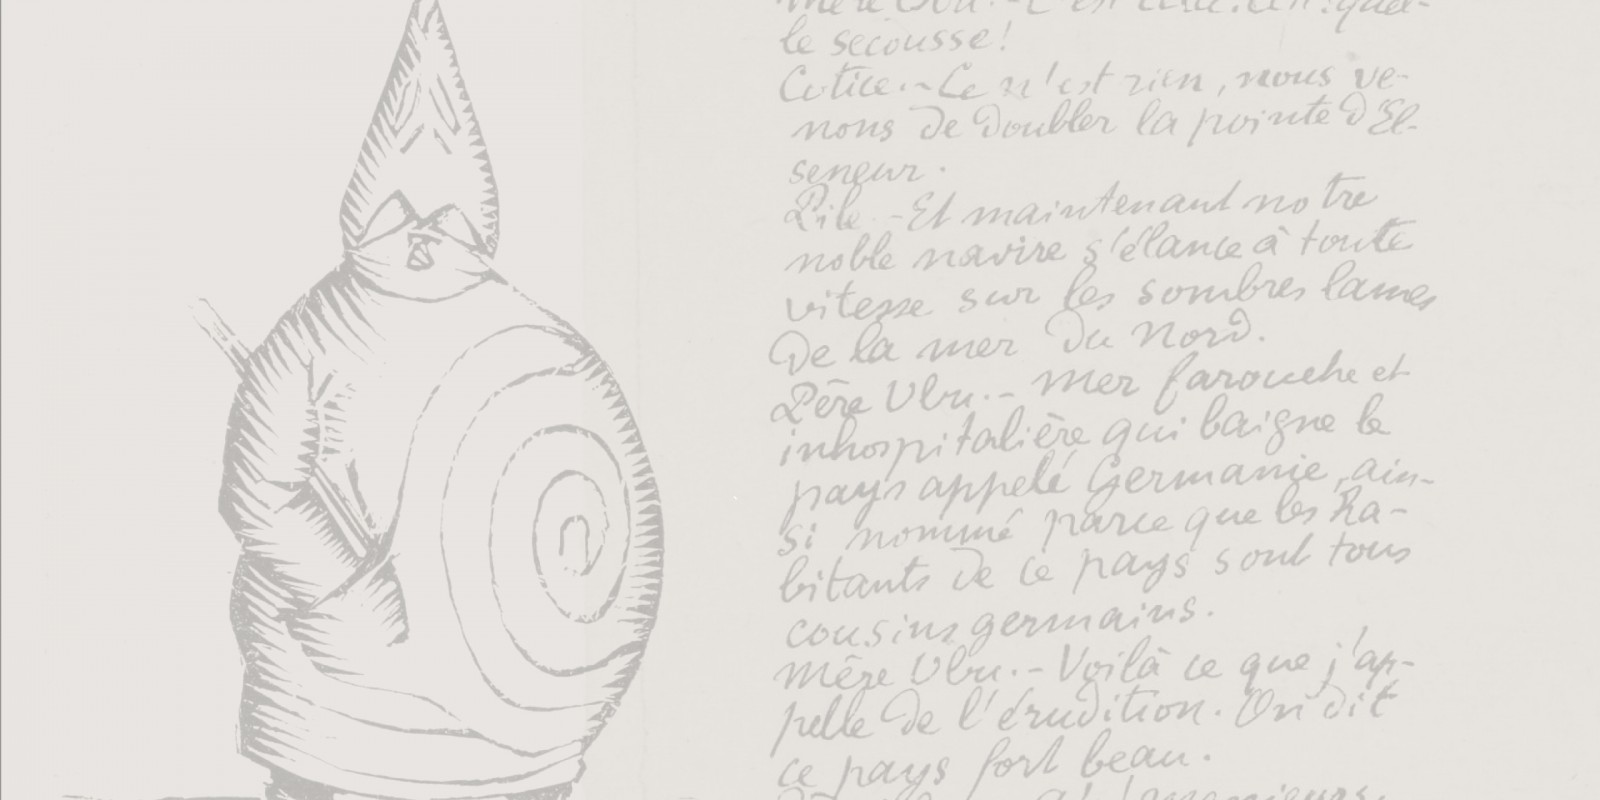 Mère Ubu.-C'est
le secousse!
Cotice.-Ce n'est rien, nous ve-
nons de doubler la pointe d'El-
seneur.
Pile.-Et maintenant notre
noble navire s'élance à toute
vitesse sur les sombres lames
de la mer du Nord.
Père Ubu.-Mer farouche et
inhospitalière qui baigne le
pays appelé Germanie, ain-
si nommé parce que les ha-
bitants de ce pays sont tous
cousins germains.
Mère Ubu.-Voilà ce que j'ap-
pelle de l'érudition. On dit
ce pays fort beau.